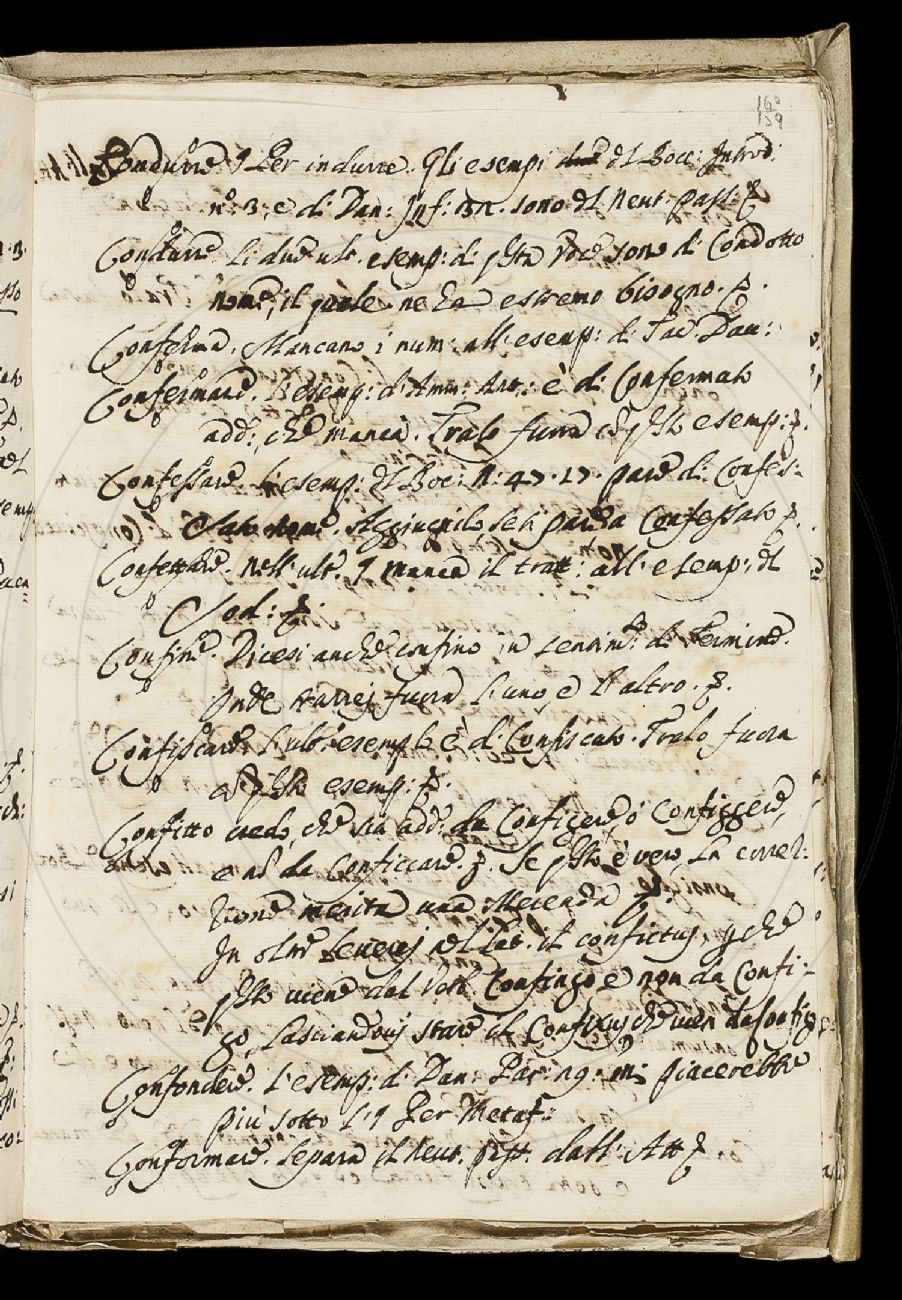 160
159
Condurre. § Per indurre. Gli esempi dl Bocc: Introd:
n.º 3. e di Dan: Inf: sono dl neut. pass:
Condurre. Li due ult. esemp: di qsta voce sono di Condotto
nome, il quale ne ha estremo bisogno.
Conferma. Mancano i num: all'esemp: di Dav:
Confermare. L'esemp: d'Amm: Ant: è di Confermato
add: che manca. Tralo fuora cō qsto esemp:
Confessare. L'esemp: dl Boc: N: 47. 17. pare di Confes-
sato nome. Aggiugnilo, se ti parrà Confessato
Confettare. Nell'ult. § manca il tratt: all'esemp: dl
Sod:
Confine. Dicesi anche confino in sentim.to di Termine.
Onde trarrei fuora l'uno e l'altro.
Confiscare. L'ult.º esemplo è di Confiscato. Tralo fuora
cō qsto esemp:
Confitto credo, che sia add: da Configere, o Configgere,
e nō da Conficcare. Se qsto è vero la correz-
zione merita una Merenda
In oltre leverei dl Lat. il confictus, pche
qsto viene dal Verb. Confingo e non da Confi-
go, lasciandovi stare il Confixus che vien da Configo
Confondere. L'esemp: di Dan: Par: 29: mi piacerebbe
più sotto l'§ Per Metaf:
Conformare. Separa il Neut. pass. dall'Att